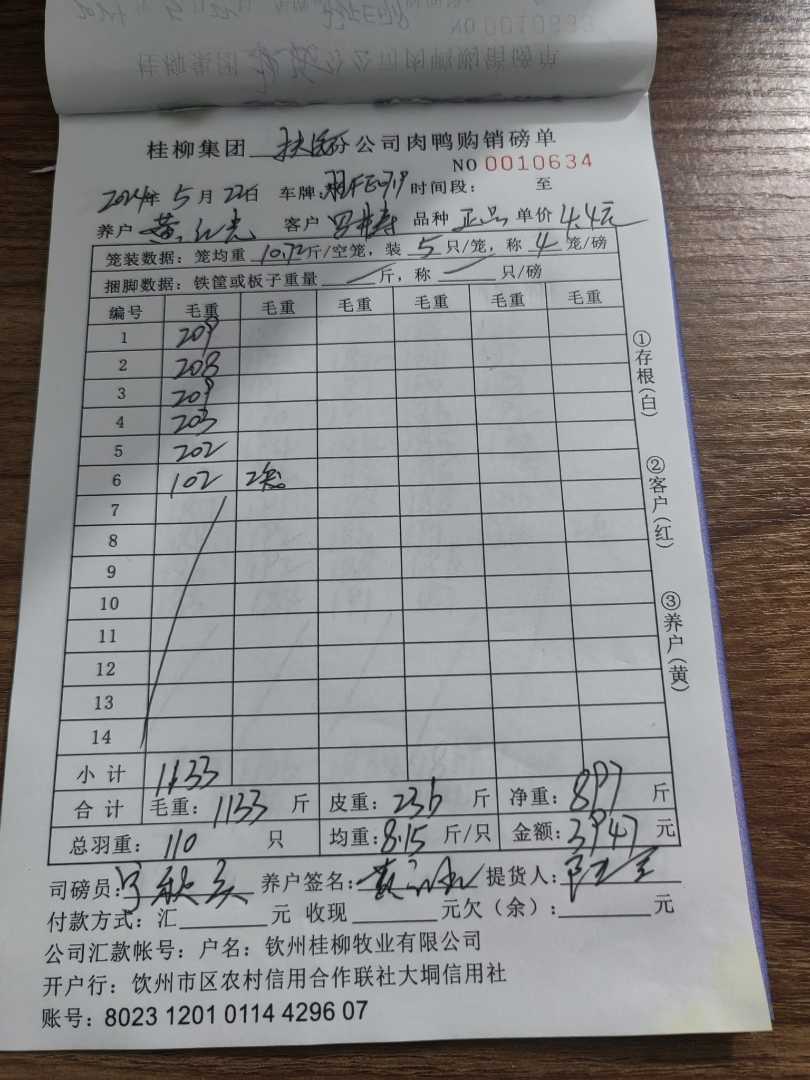 桂柳集团 扶隆分公司肉鸭购销磅单
NO 0010634
2024年 5月 22日 车牌: 时间段: 至
养户 黄红光 客户 品种 正品 单价 4.4元
笼装数据: 笼均重 10.72斤/空笼, 装 5 只/笼, 称 4 笼/磅
捆脚数据: 铁筐或板子重量 斤, 称 只/磅
编号 毛重 毛重 毛重 毛重 毛重 毛重
1 209
2 208
3 209
4 203
5 202
6 102 2笼
7
8
9
10
11
12
13
14
小计 1133
合计 毛重: 1133 斤 皮重: 236 斤 净重: 897 斤
总羽重: 110 只 均重: 8.15 斤/只 金额: 3947 元
司磅员: 养户签名: 提货人:
付款方式: 汇 元 收现 元欠(余): 元
公司汇款帐号: 户名: 钦州桂柳牧业有限公司
开户行: 饮州市区农村信用合作联社大垌信用社
账号: 8023 1201 0114 4296 07
①存根(白)
②客户(红)
③养户(黄)